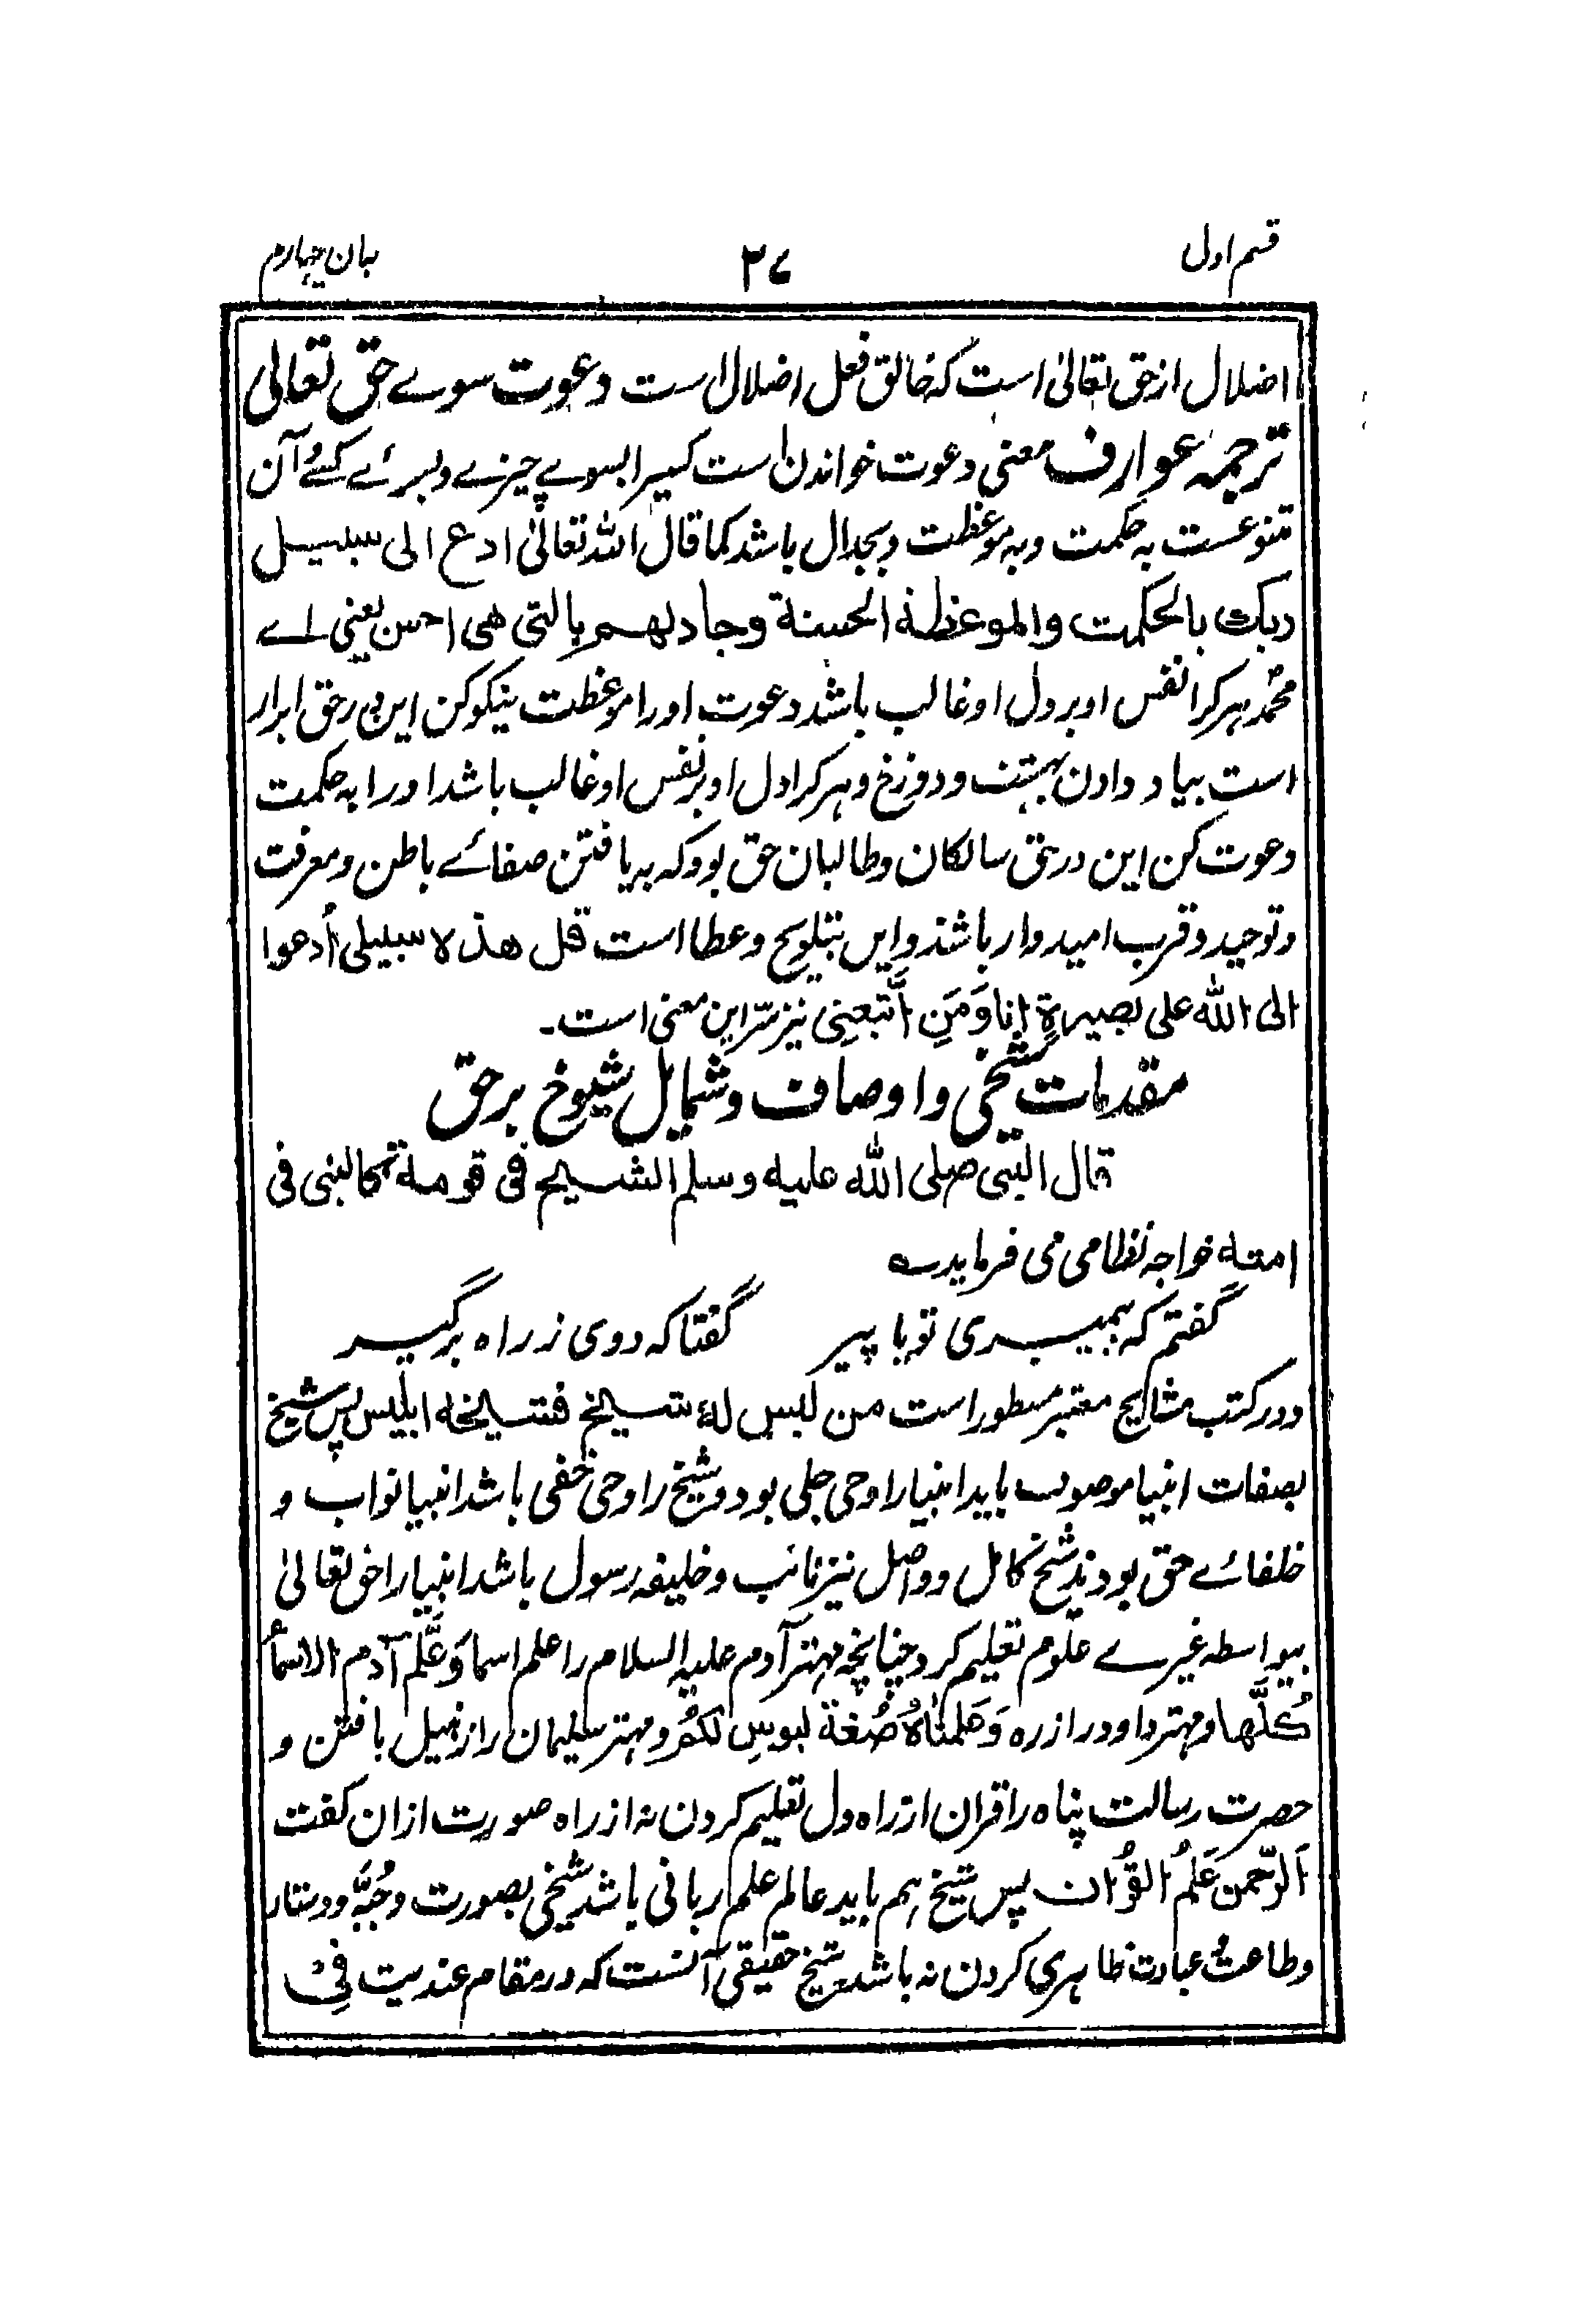 قسم اول
۲۷
بیان چہارم
اضلال از حق تعالیٰ است کہ خالق فعل اضلال است دعوت سوے حق تعالی
ترجمہ عوارف معنی دعوت خواندن است کسیرا بسوے چیزے و برائے کسے و آن
متنوعست بہ حکمت و بہ موعظت و بجدال باشد کما قال اللہ تعالیٰ ادع الی سبیل
ربک بالحکمت والموعظة الحسنة وجادلهم بالتی هی احسن یعنی اے
محمد ہر کرا نفس او بر دل او غالب باشد دعوت او را موعظت نیکو کن این در حق ابرار
است بیاد دادن بہشت و دوزخ و ہر کرا دل او بر نفس او غالب باشد او را بہ حکمت
دعوت کن این در حق سالکان و طالبان حق بود کہ بہ یافتن صفائے باطن و معرفت
و توحید و قرب امیدوار باشند و این بتلویح و عطا است قل هذه سبیلی أدعوا
الی الله علی بصیرة انا وَمَنِ اتَّبعنِی نیز سرّ این معنی است۔
مقدمات شیخی و اوصاف و شمایل شیوخ برحق
قال النبی صلی الله علیه وسلم الشیخ فی قومه کالنبی فی
امته خواجہ نظامی می فرماید؎
گفتم کہ بمیبری تو با پیر گفتا کہ دوی ز راہ برگیر
و در کتب مشایخ معتبر مسطور است من لیس لهٗ شیخ فشیخه ابلیس پس شیخ
بصفات انبیا موصوف باید انبیا را وحی جلی بود و شیخ را وحی خفی باشد انبیا نواب و
خلفائے حق بودند شیخ کامل و واصل نیز نائب و خلیفہ رسول باشد انبیا را حق تعالیٰ
بیواسطہ غیرے علوم تعلیم کرد چنانچہ مہتر آدم علیہ السلام را علم اسما وَعَلَّم آدم الاسمأ
کُلَّها و مہتر داود را زرہ وَعلمنٰاهُ صُنعة لبوسٍ لکمُ و مہتر سلیمان را زنبیل بافتن و
حضرت رسالت پناہ را قران از راہ دل تعلیم کردن نہ از راہ صورت ازان گفت
اَلرّحمن عَلمُ القُرٰان پس شیخ ہم باید عالم علم ربانی باشد شیخی بصورت و جُبَّہ و دستار
و طاعت و عبادت ظاہری کردن نہ باشد شیخ حقیقی آنست کہ در مقام عندیت فِیْ